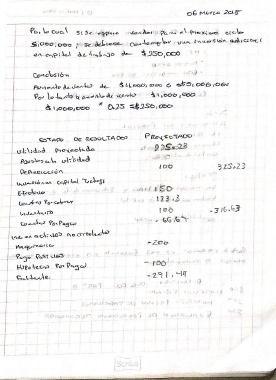 06 Marzo 2015
Por lo cual si se espera vender para el proximo ciclo
$1,000,000 se deberá contemplar una inversión adicional
en capital de trabajo de $250,000
Conclusión
Aumento de ventas de $4,000,000 a $5,000,000
Por lo tanto aumento de ventas $1,000,000
$1,000,000 * 0.25 = $250,000
ESTADO DE RESULTADOS PROYECTADO
Utilidad Proyectada 225.23
utilidad
Depreciación 100 325.23
Capital Trabajo
Efectivo 150
Cuentas Por cobrar 133.3
Inventario 100 -316.63
Cuentas Por Pagar -66.67
activos no circulante
Maquinaria -200
Pagar
Hipoteca Por Pagar -100
Faltante -291.49
Scribe